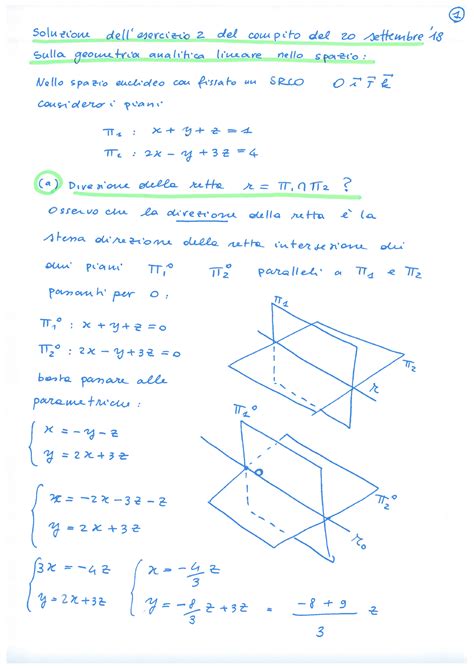 ①
Soluzione dell'esercizio 2 del compito del 20 settembre '18
sulla geometria analitica lineare nello spazio:
Nello spazio euclideo con fissato un SRCO O i⃗ j⃗ k⃗
considero i piani
π₁ : x + y + z = 1
π₂ : 2x - y + 3z = 4
(a) Direzione della retta r = π₁ ∩ π₂ ?
Osservo che la direzione della retta è la
stessa direzione della retta intersezione dei
due piani π₁° π₂° paralleli a π₁ e π₂
passanti per O :
π₁° : x + y + z = 0
π₂° : 2x - y + 3z = 0
basta passare alle
parametriche :
π₁
π₂
r
π₁°
O
π₂°
r₀
{ x = -y - z
{ y = 2x + 3z
{ x = -2x - 3z - z
{ y = 2x + 3z
{ 3x = -4z { x = -4/3 z
{ y = 2x + 3z { y = -8/3 z + 3z = (-8 + 9)/3 z